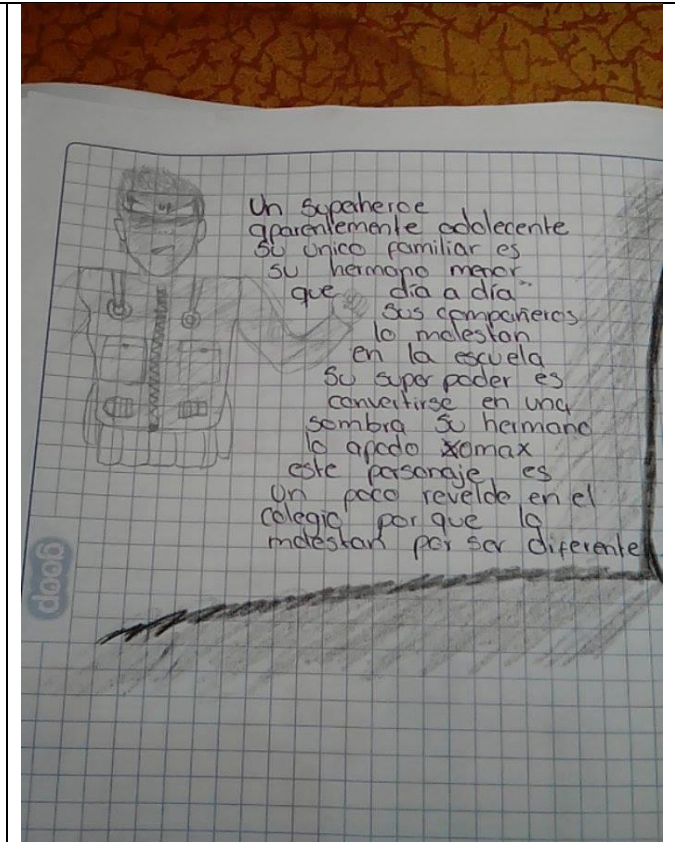 Un superheroe
aparentemente adolecente
su único familiar es
su hermano menor
que día a día
sus compañeros
lo molestan
en la escuela
Su super poder es
convertirse en una
sombra su hermano
lo apodo xomax
este personaje es
un poco revelde en el
colegio por que lo
molestan por ser diferente
goop